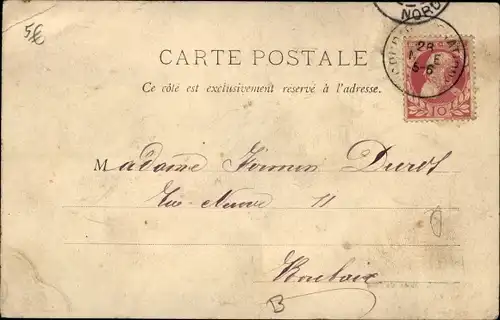 5€
NORD
CARTE POSTALE
28
E
5-6
Ce côté est exclusivement reservé à l'adresse.
10
Madame Firmin Durot
Rue Neuve 11
Roubaix
B